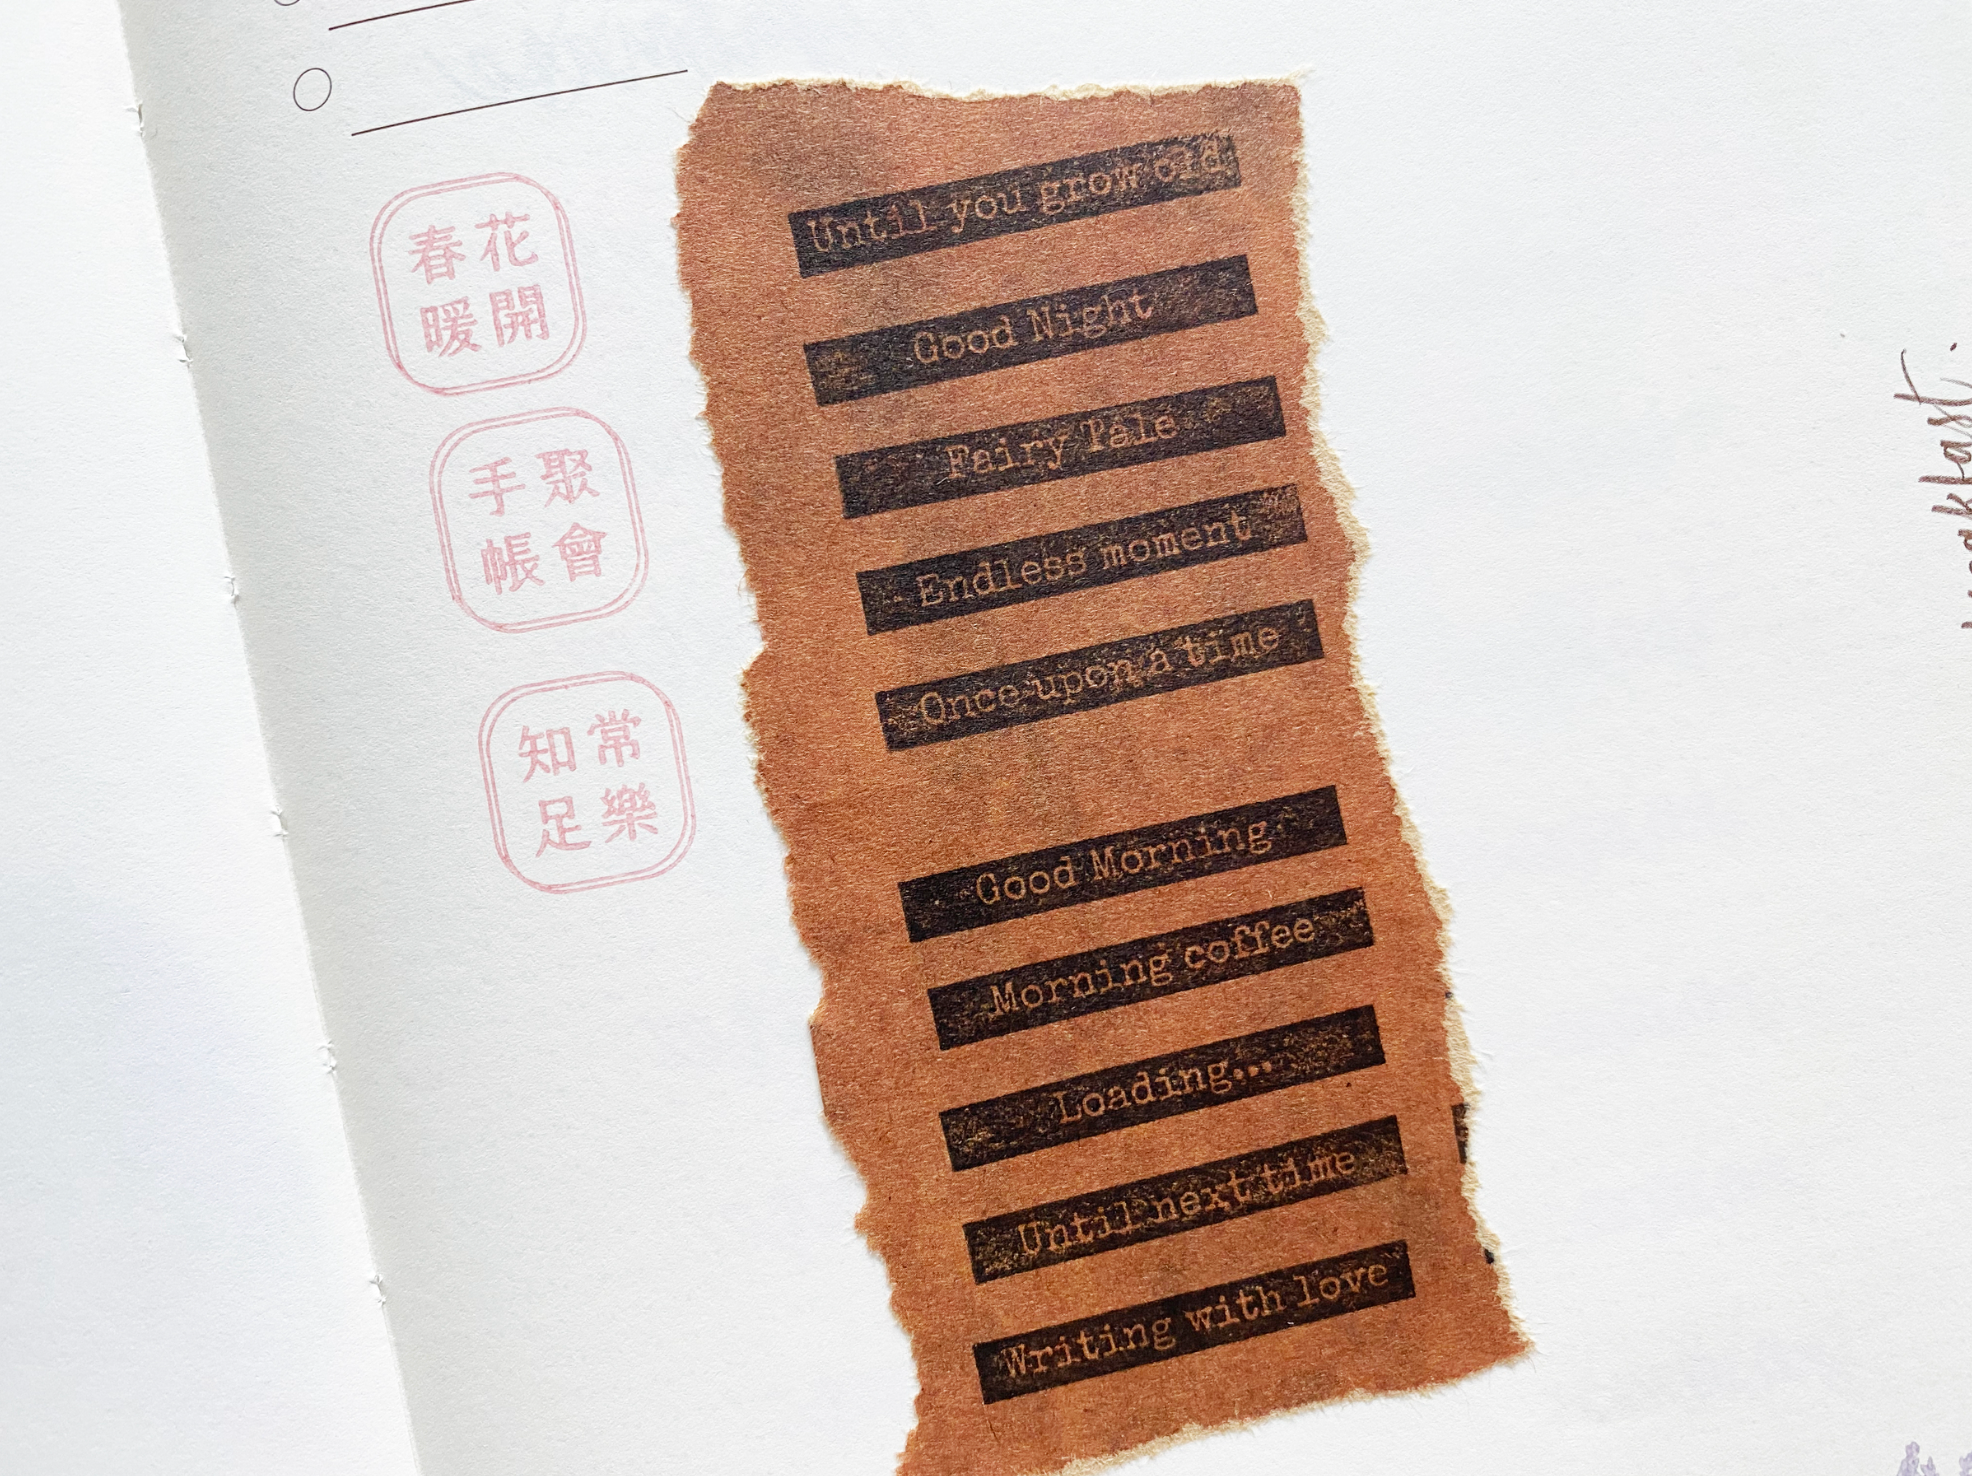 春花
暖開
手聚
帳會
知常
足樂
Until you grow old
Good Night
Fairy Tale
Endless moment
Once upon a time
Good Morning
Morning coffee
Loading...
Until next time
Writing with love